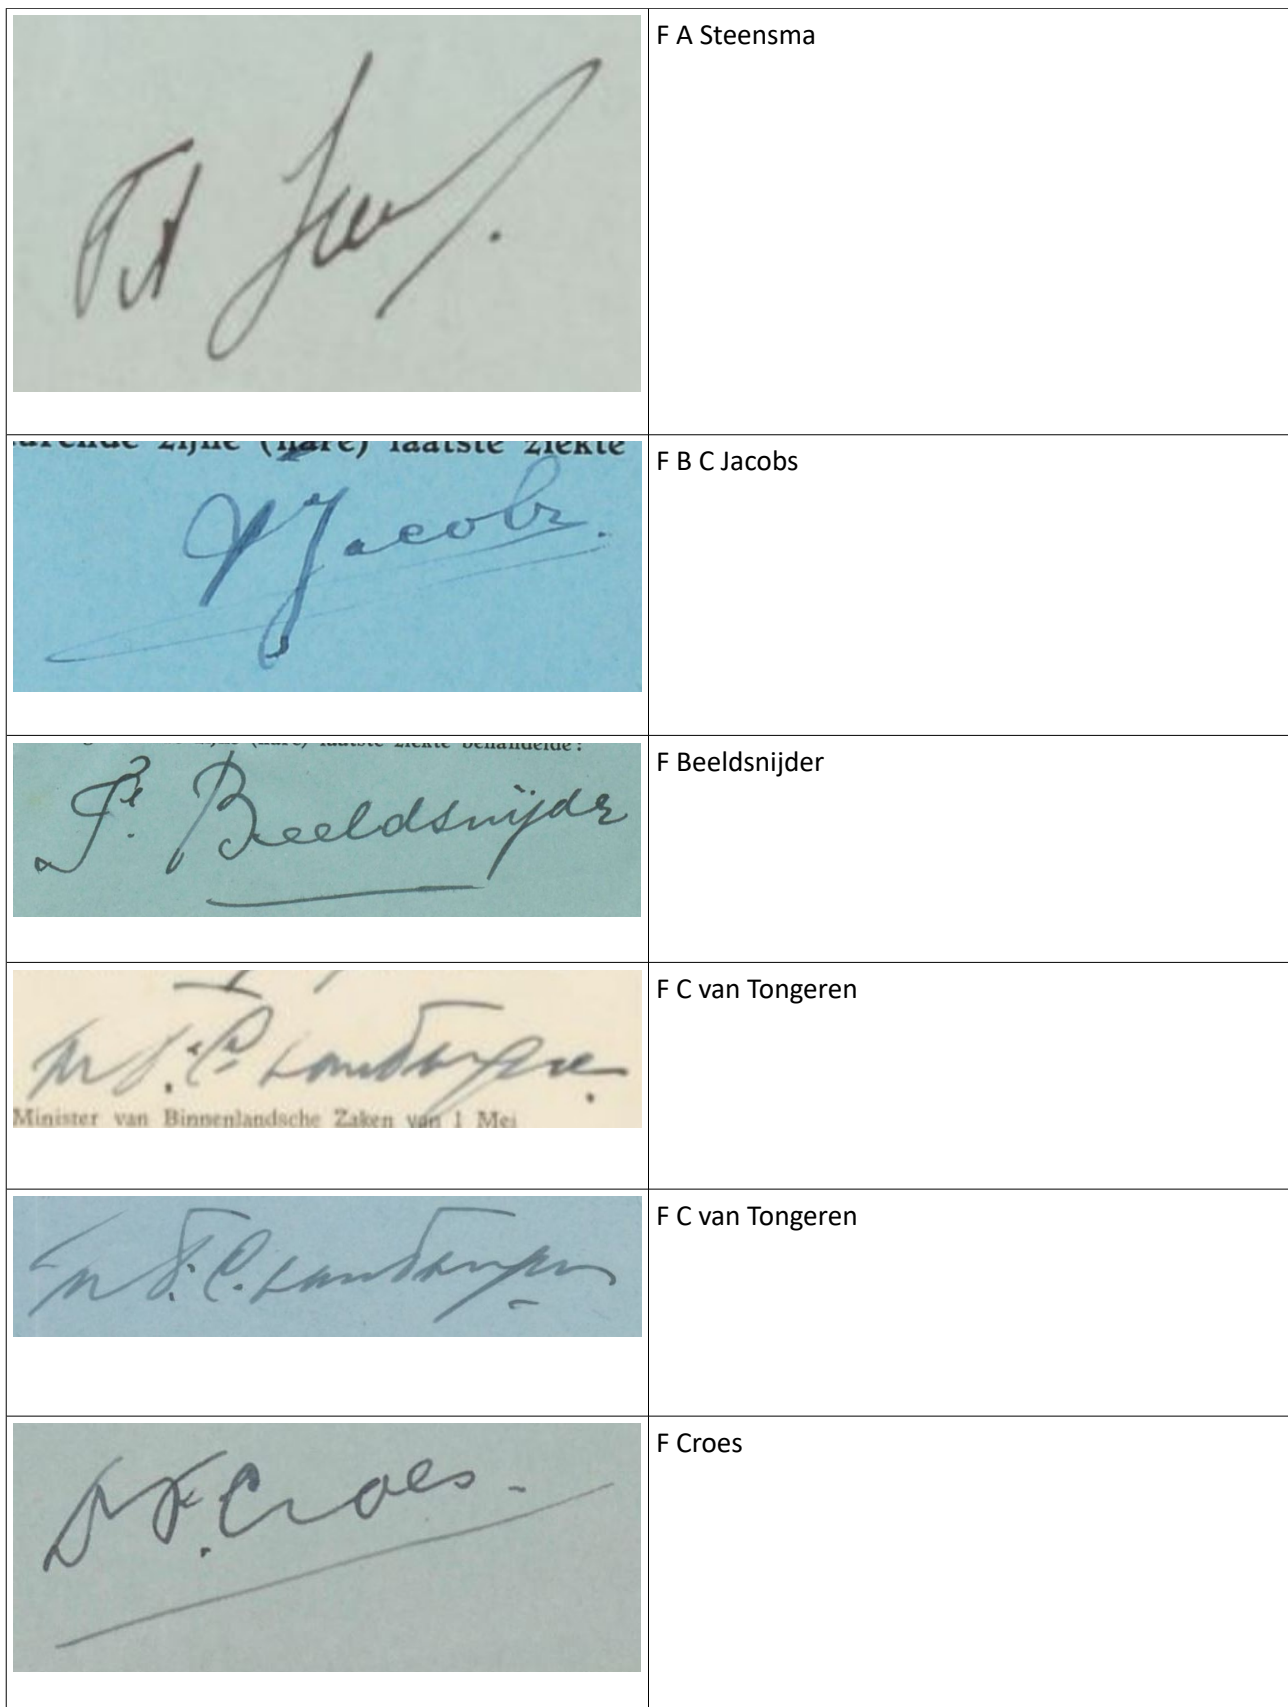 F A Steensma
urende zijne (hare) laatste ziekte
Jacobs.
F B C Jacobs
(hare) laatste ziekte behandelde:
F. Beeldsnijder
F Beeldsnijder
F. C. van Tongeren
Minister van Binnenlandsche Zaken van 1 Mei
F C van Tongeren
F. C. van Tongeren
F C van Tongeren
Dr F. Croes.
F Croes